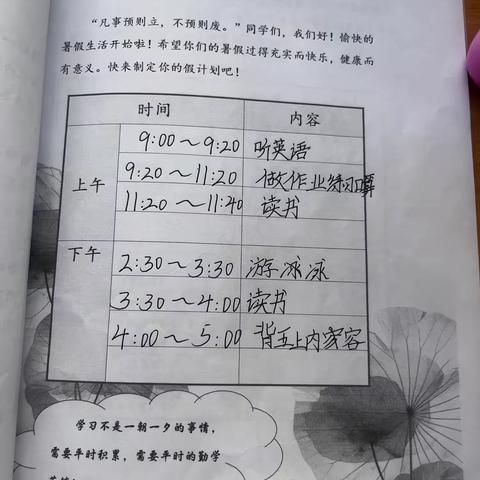 “凡事预则立，不预则废。”同学们，我们好！愉快的
暑假生活开始啦！希望你们的暑假过得充实而快乐，健康而
有意义。快来制定你的假计划吧！
时间 内容
上午
9:00～9:20 听英语
9:20～11:20 做作业练习
11:20～11:40 读书
下午
2:30～3:30 游泳
3:30～4:00 读书
4:00～5:00 背五上内容
学习不是一朝一夕的事情，
需要平时积累，需要平时的勤学